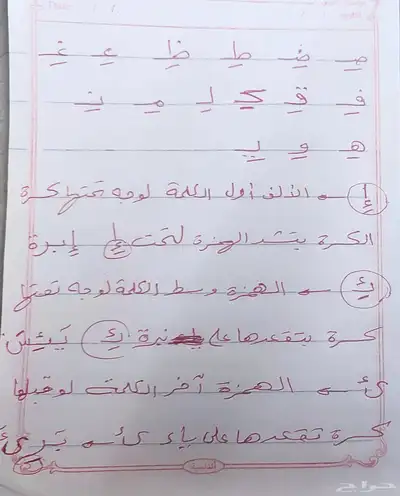 صِ ضِ طِ ظِ عِ غِ
فِ قِ كِ لِ مِ نِ
هِ وِ يِ
إِ ← الألف أول الكلمة لوجه تحتها كسرة
الكسرة بتشد الهمزة لتحت إِ إبرة
ئِ ← الهمزة وسط الكلمة لوجه تحتها
كسرة بتقعدها على نبرة ئِ يَئِسَ
ئ ← الهمزة آخر الكلمة لو قبلها
كسرة تقعدها على ياء ئ ← بَرِئَ
حراج